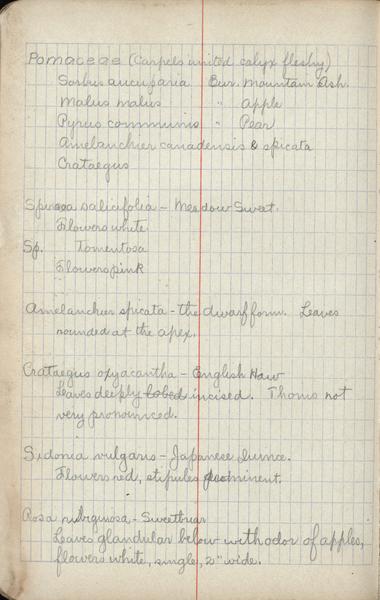 Pomaceae (Carpels united calyx fleshy)
Sorbus aucuparia Eur. Mountain Ash.
Malus malus " Apple
Pyrus communis " Pear
Amelanchier canadensis & spicata
Crataegus
Spiraea salicifolia - Meadow Sweet.
Flowers white
Sp. Tomentosa
Flowers pink
Amelanchier spicata - the dwarf form. Leaves
rounded at the apex.
Crataegus oxyacantha - English Haw
Leaves deeply lobed incised. Thorns not
very pronounced.
Sidonia vulgaris - Japanese Quince.
Flowers red, stipules prominent.
Rosa rubiginosa - Sweetbriar
Leaves glandular below with odor of apples,
flowers white, single, 2" wide.